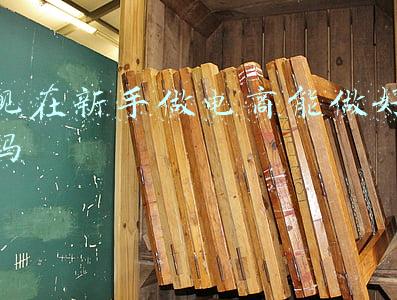 现在新手做电商能做好
吗